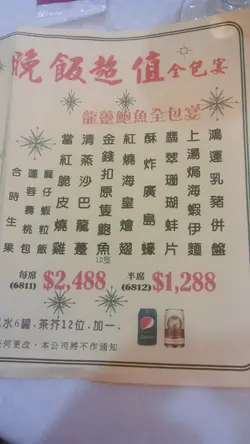 晚飯超值全包宴
龍躉鮑魚全包宴
鴻運乳豬併盤
上湯焗海蝦伊麵
翡翠珊瑚蚌片
酥炸廣島蠔
紅燒海皇燴翅
金錢扣原隻鮑魚
12隻
清蒸沙巴龍躉
當紅脆皮燒雞
龍仔蝦粒飯
蓮蓉壽桃包
合時生果
每席 $2,488 半席 $1,288
(6811) (6812)
水6罐．茶芥12位．加一．
任何更改，本公司將不作通知
pepsi